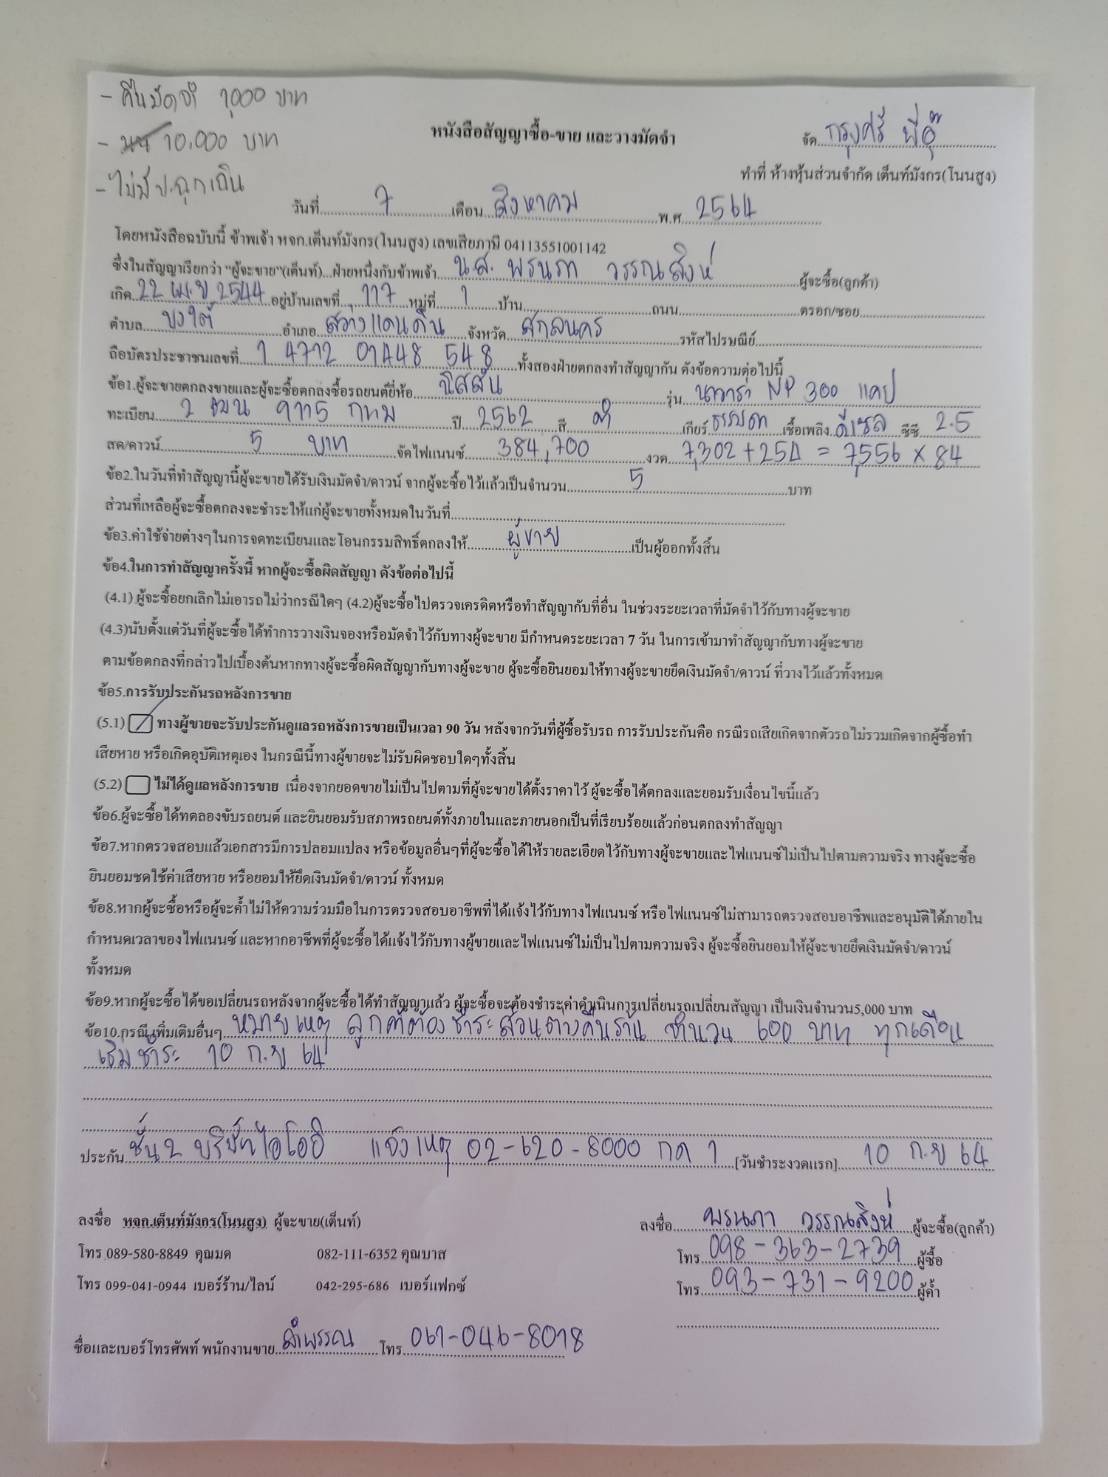 - คืนมัดจำ 1,000 บาท
- นช 10,000 บาท
- ไม่มี ป.ฉุกเฉิน
หนังสือสัญญาซื้อ-ขาย และวางมัดจำ
จัด กรุงศรี พี่อุ๊
ทำที่ ห้างหุ้นส่วนจำกัด เต็นท์มังกร(โนนสูง)
วันที่ 7 เดือน สิงหาคม พ.ศ 2564
โดยหนังสือฉบับนี้ ข้าพเจ้า หจก.เต็นท์มังกร(โนนสูง) เลขเสียภาษี 04113551001142
ซึ่งในสัญญาเรียกว่า "ผู้จะขาย"(เต็นท์)...ฝ่ายหนึ่งกับข้าพเจ้า น.ส. พรนภา วรรณสิงห์ ผู้จะซื้อ(ลูกค้า)
เกิด 22 เม.ย 2544 อยู่บ้านเลขที่ 117 หมู่ที่ 1 บ้าน ถนน ตรอก/ซอย
ตำบล บงใต้ อำเภอ สว่างแดนดิน จังหวัด สกลนคร รหัสไปรษณีย์
ถือบัตรประชาชนเลขที่ 1 4712 01448 548 ทั้งสองฝ่ายตกลงทำสัญญากัน ดังข้อความต่อไปนี้
ข้อ1.ผู้จะขายตกลงขายและผู้จะซื้อตกลงซื้อรถยนต์ยี่ห้อ นิสสัน รุ่น นาวาร่า NP 300 แคป
ทะเบียน 2 ฒน 9115 กทม ปี 2562 สี ดำ เกียร์ ธรรมดา เชื้อเพลิง ดีเซล ซีซี 2.5
สด/ดาวน์ 5 บาท จัดไฟแนนซ์ 384,700 งวด 7,302+254 = 7,556 x 84
ข้อ2.ในวันที่ทำสัญญานี้ผู้จะขายได้รับเงินมัดจำ/ดาวน์ จากผู้จะซื้อไว้แล้วเป็นจำนวน 5 บาท
ส่วนที่เหลือผู้จะซื้อตกลงจะชำระให้แก่ผู้จะขายทั้งหมดในวันที่
ข้อ3.ค่าใช้จ่ายต่างๆในการจดทะเบียนและโอนกรรมสิทธิ์ตกลงให้ ผู้ขาย เป็นผู้ออกทั้งสิ้น
ข้อ4.ในการทำสัญญาครั้งนี้ หากผู้จะซื้อผิดสัญญา ดังข้อต่อไปนี้
(4.1) ผู้จะซื้อยกเลิกไม่เอารถไม่ว่ากรณีใดๆ (4.2)ผู้จะซื้อไปตรวจเครดิตหรือทำสัญญากับที่อื่น ในช่วงระยะเวลาที่มัดจำไว้กับทางผู้จะขาย
(4.3)นับตั้งแต่วันที่ผู้จะซื้อได้ทำการวางเงินจองหรือมัดจำไว้กับทางผู้จะขาย มีกำหนดระยะเวลา 7 วัน ในการเข้ามาทำสัญญากับทางผู้จะขาย
ตามข้อตกลงที่กล่าวไปเบื้องต้นหากทางผู้จะซื้อผิดสัญญากับทางผู้จะขาย ผู้จะซื้อยินยอมให้ทางผู้จะขายยึดเงินมัดจำ/ดาวน์ ที่วางไว้แล้วทั้งหมด
ข้อ5.การรับประกันรถหลังการขาย
(5.1) ทางผู้ขายจะรับประกันดูแลรถหลังการขายเป็นเวลา 90 วัน หลังจากวันที่ผู้ซื้อรับรถ การรับประกันคือ กรณีรถเสียเกิดจากตัวรถไม่รวมเกิดจากผู้ซื้อทำ
เสียหาย หรือเกิดอุบัติเหตุเอง ในกรณีนี้ทางผู้ขายจะไม่รับผิดชอบใดๆทั้งสิ้น
(5.2) ไม่ได้ดูแลหลังการขาย เนื่องจากยอดขายไม่เป็นไปตามที่ผู้จะขายได้ตั้งราคาไว้ ผู้จะซื้อได้ตกลงและยอมรับเงื่อนไขนี้แล้ว
ข้อ6.ผู้จะซื้อได้ทดลองขับรถยนต์ และยินยอมรับสภาพรถยนต์ทั้งภายในและภายนอกเป็นที่เรียบร้อยแล้วก่อนตกลงทำสัญญา
ข้อ7.หากตรวจสอบแล้วเอกสารมีการปลอมแปลง หรือข้อมูลอื่นๆที่ผู้จะซื้อได้ให้รายละเอียดไว้กับทางผู้จะขายและไฟแนนซ์ไม่เป็นไปตามความจริง ทางผู้จะซื้อ
ยินยอมชดใช้ค่าเสียหาย หรือยอมให้ยึดเงินมัดจำ/ดาวน์ ทั้งหมด
ข้อ8.หากผู้จะซื้อหรือผู้จะค้ำไม่ให้ความร่วมมือในการตรวจสอบอาชีพที่ได้แจ้งไว้กับทางไฟแนนซ์ หรือไฟแนนซ์ไม่สามารถตรวจสอบอาชีพและอนุมัติได้ภายใน
กำหนดเวลาของไฟแนนซ์ และหากอาชีพที่ผู้จะซื้อได้แจ้งไว้กับทางผู้ขายและไฟแนนซ์ไม่เป็นไปตามความจริง ผู้จะซื้อยินยอมให้ผู้จะขายยึดเงินมัดจำ/ดาวน์
ทั้งหมด
ข้อ9.หากผู้จะซื้อได้ขอเปลี่ยนรถหลังจากผู้จะซื้อได้ทำสัญญาแล้ว ผู้จะซื้อจะต้องชำระค่าดำเนินการเปลี่ยนรถเปลี่ยนสัญญา เป็นเงินจำนวน5,000 บาท
ข้อ10.กรณีเพิ่มเติมอื่นๆ หมายเหตุ ลูกค้าต้องชำระส่วนต่างคืนร้าน จำนวน 600 บาท ทุกเดือน
เริ่มชำระ 10 ก.ย 64
ประกัน ชั้น 2 บริษัทไอโออิ แจ้งเหตุ 02-620-8000 กด 1 [วันชำระงวดแรก] 10 ก.ย 64
ลงชื่อ หจก.เต็นท์มังกร(โนนสูง) ผู้จะขาย(เต็นท์)
ลงชื่อ พรนภา วรรณสิงห์ ผู้จะซื้อ(ลูกค้า)
โทร 089-580-8849 คุณมด 082-111-6352 คุณบาส
โทร 098-363-2739 ผู้ซื้อ
โทร 099-041-0944 เบอร์ร้าน/ไลน์ 042-295-686 เบอร์แฟกซ์
โทร 093-731-9200 ผู้ค้ำ
ชื่อและเบอร์โทรศัพท์ พนักงานขาย ลำพรรณ โทร 061-046-8018